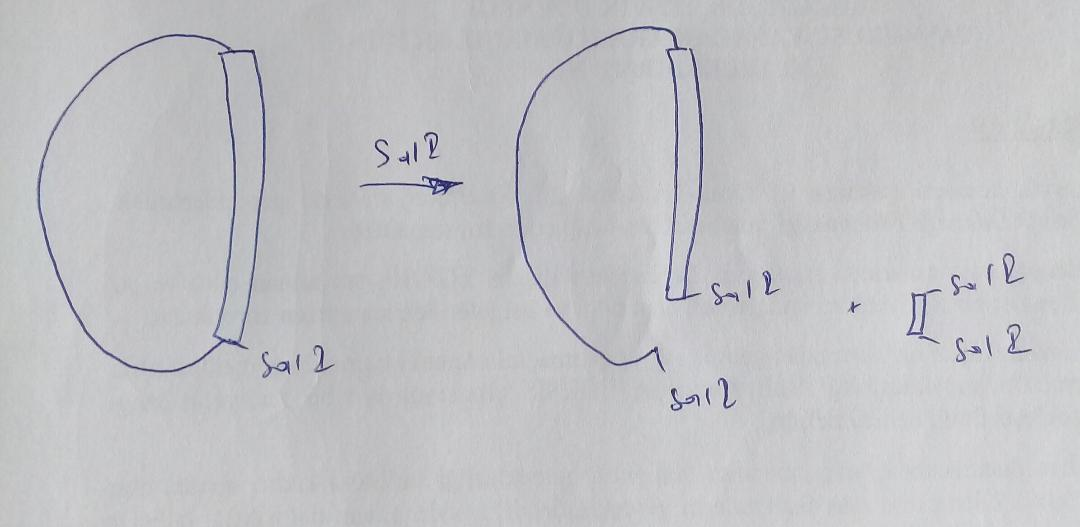 Sal I
Sal I
Sal I
+
Sal I
Sal I
Sal I